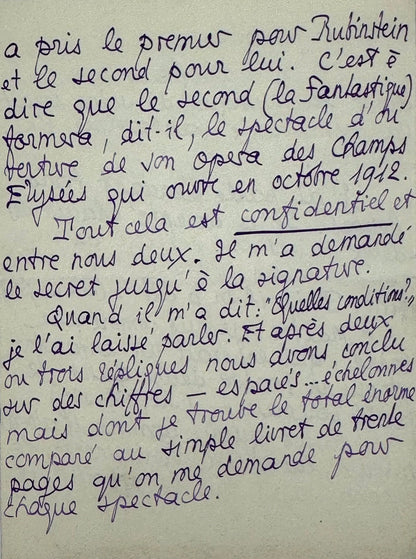 a pris le premier pour Rubinstein
et le second pour lui. C'est à
dire que le second (la Fantastique)
formera, dit-il, le spectacle d'ou
verture de son opera des Champs
Elysées qui ouvre en octobre 1912.
Tout cela est confidentiel et
entre nous deux. Il m'a demandé
le secret jusqu'à la signature.
Quand il m'a dit: "Quelles conditions?",
je l'ai laissé parler. Et après deux
ou trois répliques nous avons conclu
sur des chiffres — espacés... échelonnés
mais dont je trouve le total énorme
comparé au simple livret de trente
pages qu'on me demande pour
chaque spectacle.